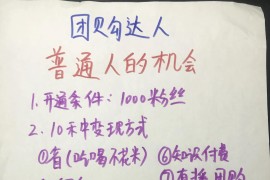 团购达人
普通人的机会
1.开通条件：1000粉丝
2.10种变现方式
①省(吃喝不花米) ⑥知识付费
⑦直播团购